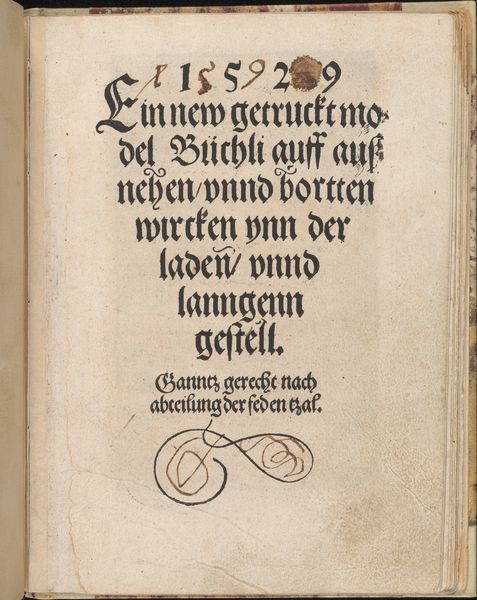 1 5 5 9 2 9
Ein new getruckt mo⸗
del Büchli auff auß⸗
nehen/ vnnd bortten
wircken ynn der
laden̄/ vnnd
lanngenn
gestell.
Ganntz gerecht nach
abteilung der feden tzal.